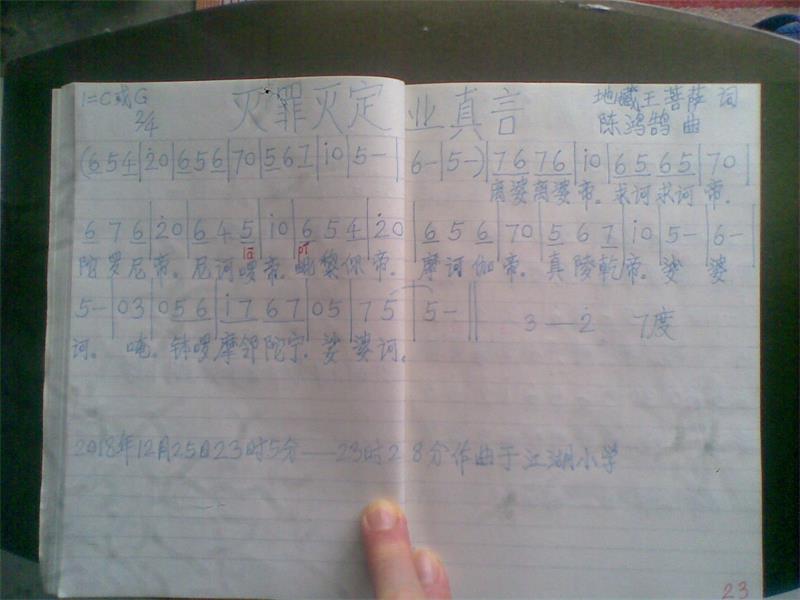 1=C或G 灭罪灭定业真言 地藏王菩萨 词
2/4 陈鸿鹄 曲
(6 5 4|2̇0|6 5 6|70|5 6 7|i̇0|5—|6—|5—)|76 76|i̇0|65 65|70|
离婆离婆帝。求诃求诃帝。
6 7 6|2̇0|6 4 5|i̇0|6 5 4|2̇0|6 5 6|70|5 6 7|i̇0|5—|6—|
la pi
陀罗尼帝。尼诃啰帝。毗黎你帝。摩诃伽帝。真陵乾帝。娑婆
5—|03|056|i̇7 67|05|75|5—‖ 3—2̇ 7度
诃。唵。钵啰摩邻陀宁。娑婆诃。
2018年12月25日23时5分——23时28分作曲于江湖小学
23